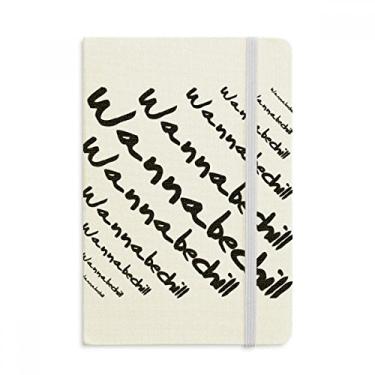 Wannabechill
Wannabechill
Wannabechill
Wannabechill
Wannabechill
Wannabechill
Wannabechill
Wannabechill
Wannabechill
Wannabechill
Wannabechill